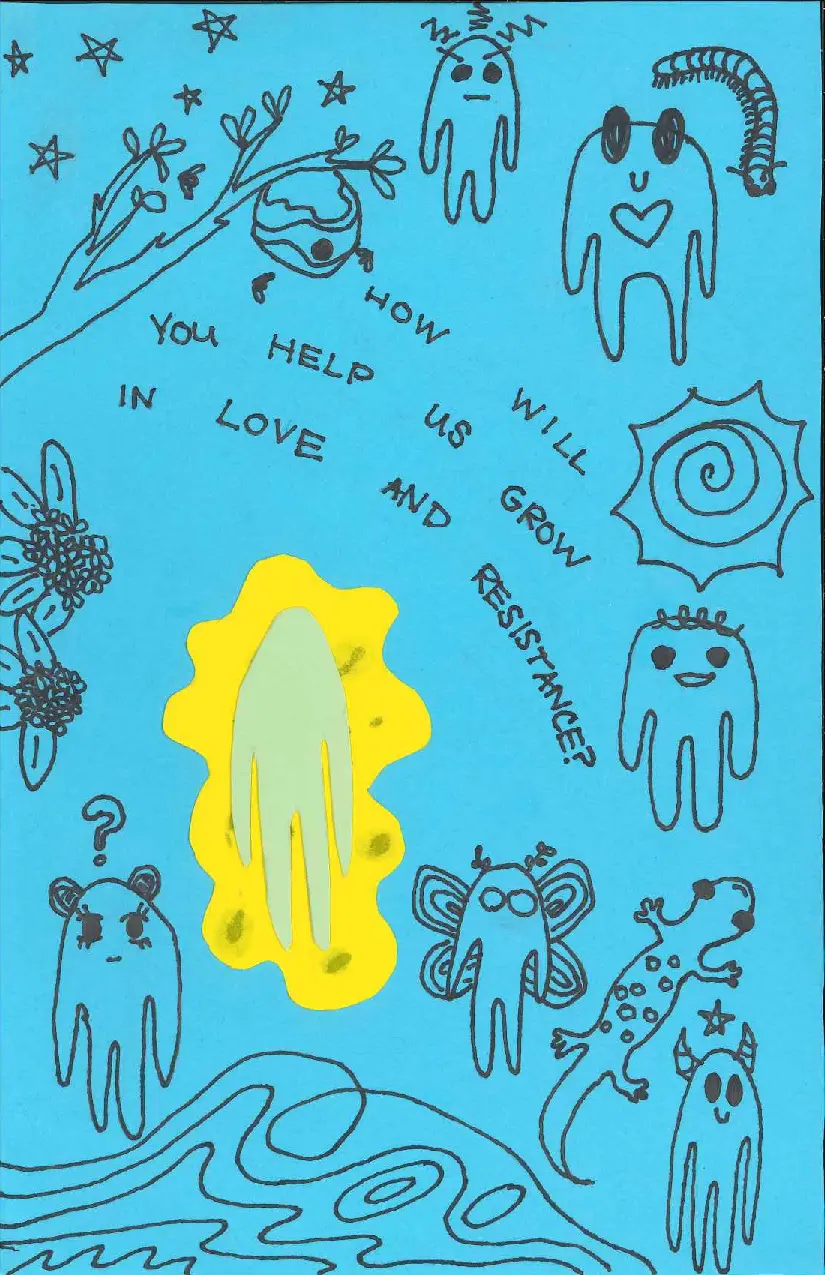 HOW WILL
YOU HELP US GROW
IN LOVE AND RESISTANCE?
?